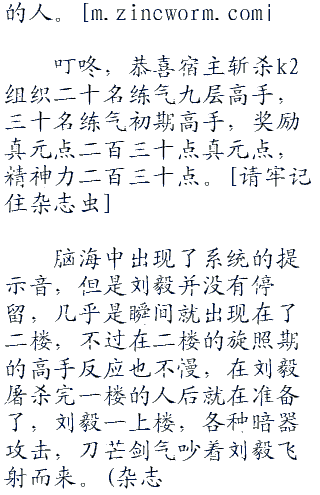 的人。[m.zincworm.com]
叮咚，恭喜宿主斩杀k2
组织二十名练气九层高手，
三十名练气初期高手，奖励
真元点二百三十点真元点，
精神力二百三十点。[请牢记
住杂志虫]
脑海中出现了系统的提
示音，但是刘毅并没有停
留，几乎是瞬间就出现在了
二楼，不过在二楼的旋照期
的高手反应也不慢，在刘毅
屠杀完一楼的人后就在准备
了，刘毅一上楼，各种暗器
攻击，刀芒剑气吵着刘毅飞
射而来。(杂志